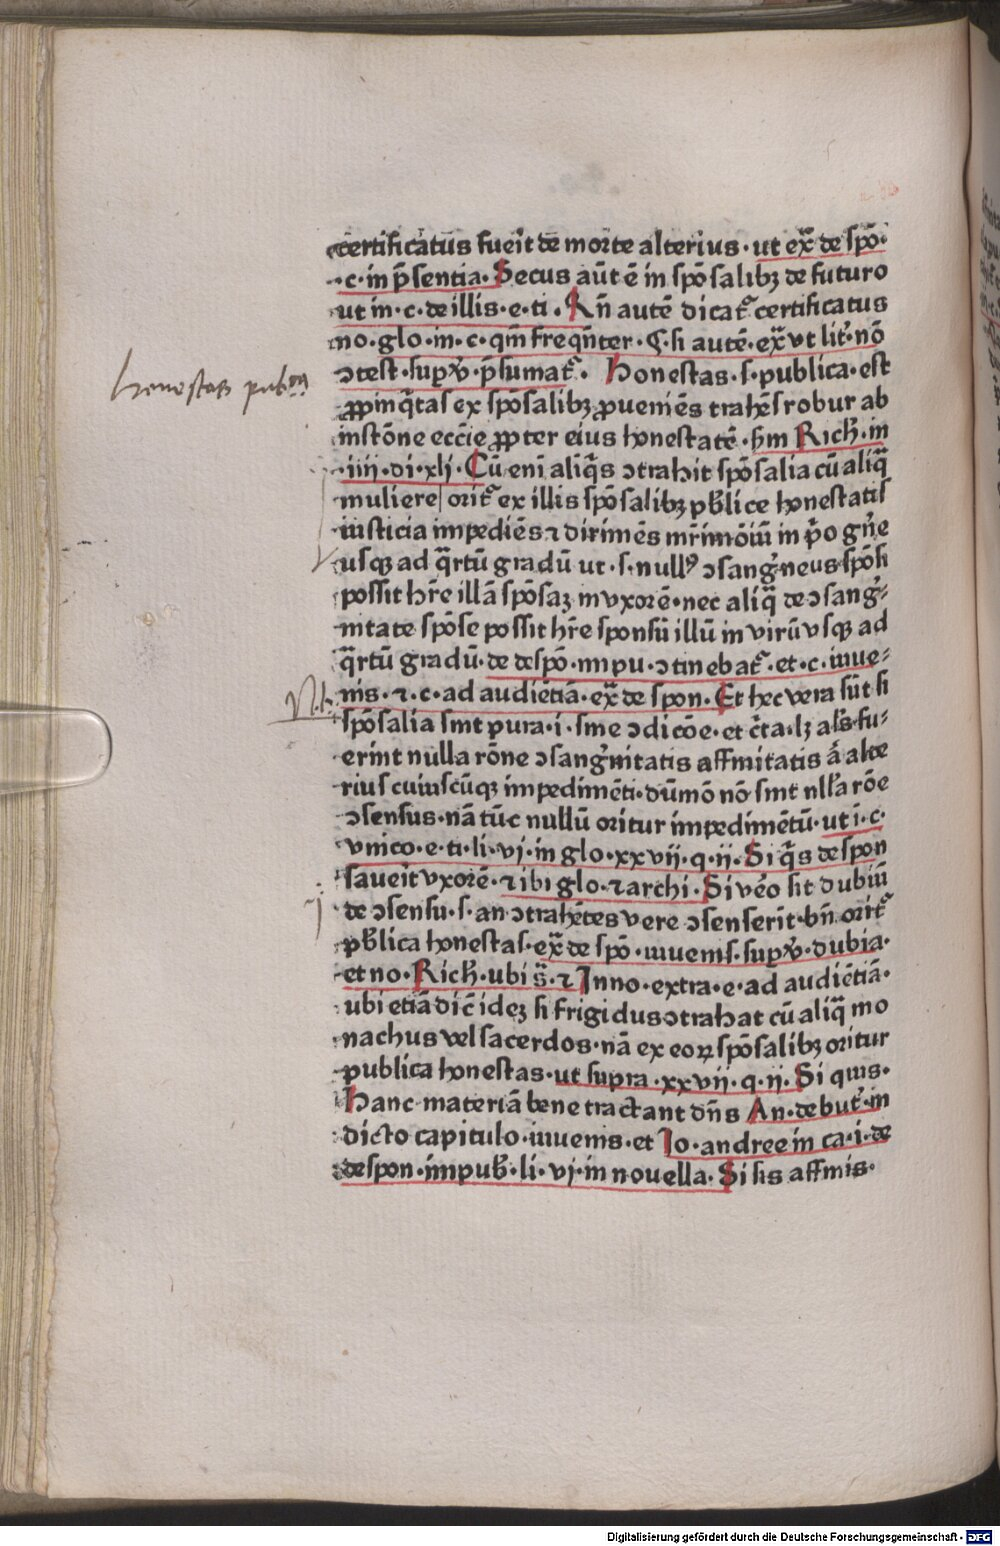 certificatus fueīt de morte alterius · ut ex̄ de spō ·
c · in p̄sentia · Secus aūt ē in spōsalibꝫ de futuro
ut in · c · de illis · e · ti · Rn̄ autē dicat᷑ certificatus
no · glo · in · c · qm̄ freqn̄ter · ¶ · si autē · ex̄ vt lit᷑ · nō
ɔtest · sup v̉ · p̄sumat᷑ · Honestas · s · publica · est
ꝓpinq̄tas ex spōsalibꝫ ꝓueniēs trahēs robur ab
instōne ecc̄ie ꝓpter eius honestatē · scd̄m Rich̄ · in
· iiij · di · xlj · Cū eni aliq̄s ɔtrahit spōsalia cū aliq̄
muliere orit᷑ ex illis spōsalibꝫ pb̄lice honestatis
iusticia impediēs ⁊ dirimēs mr̄imōiū in p̄o gn̄e
usqꝫ ad q̄rtū gradū ut · s · nullꝰ ɔsang̉neus spōsi
possit hr̄e illā spōsaꝫ in vxorē · nec aliq̄ de ɔsang̉-
nitate spōse possit hr̄e sponsū illū in virū vsqꝫ ad
q̄rtū gradū · de despō · impu · ɔtinebat᷑ · et · c · iuue-
nis · ⁊ · c · ad audiētiā · ex̄ de spon · Et hec vera sūt si
spōsalia sint pura · i · sine ɔdicōe · et c̄ta · lꝫ al̄s fu-
erint nulla rōne ɔsang̉nitatis affinitatis ā alte
rius cuiuscūqꝫ impedimēti · dūmō nō sint nll̄a rōe
ɔsensus · nā tūc nullū oritur impedimētū · ut i · c ·
vnico · e · ti · li · vj · in glo · xxvij · q · ij · Si q̄s despon
saueīt vxorē · ⁊ ibi glo · ⁊ archi · Si v̉o sit dubiū
de ɔsensu · s · an ɔtrahētes vere ɔsenserīt · bn̄ orit᷑
pb̄lica honestas · ex̄ de spō · iuuenis · sup v̉ · dubia ·
et no · Rich̄ · ubi s̄ · ⁊ Inno · extra · e · ad audiētiā ·
ubi etiā dic̄ ideꝫ si frigidus ɔtrahat cū aliq̄ mo
nachus vel sacerdos · nā ex eoꝝ spōsalibꝫ oritur
publica honestas · ut supra · xxvij · q · ij · Si quis ·
Hanc materiā bene tractant dn̄s An · de but᷑ · in
dicto capitulo · iuuenis · et Jo · andree in ca · i · de
despon · impub̄ · li · vj · in nouella · Si sis affinis ·
honestas pub^ca
N.b.
Digitalisierung gefördert durch die Deutsche Forschungsgemeinschaft - DFG